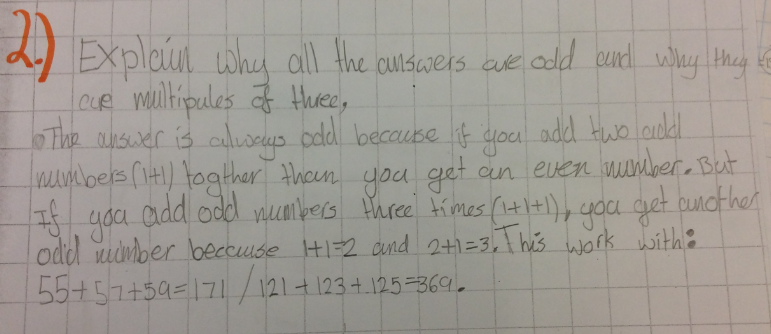 2.) Explain why all the answers are odd and why they
are multipules of three,
The answer is always odd because if you add two odd
numbers (1+1) togther than you get an even number. But
If you add odd numbers three times (1+1+1), you get another
odd number because 1+1=2 and 2+1=3. This work with:
55+57+59=171 / 121+123+125=369.